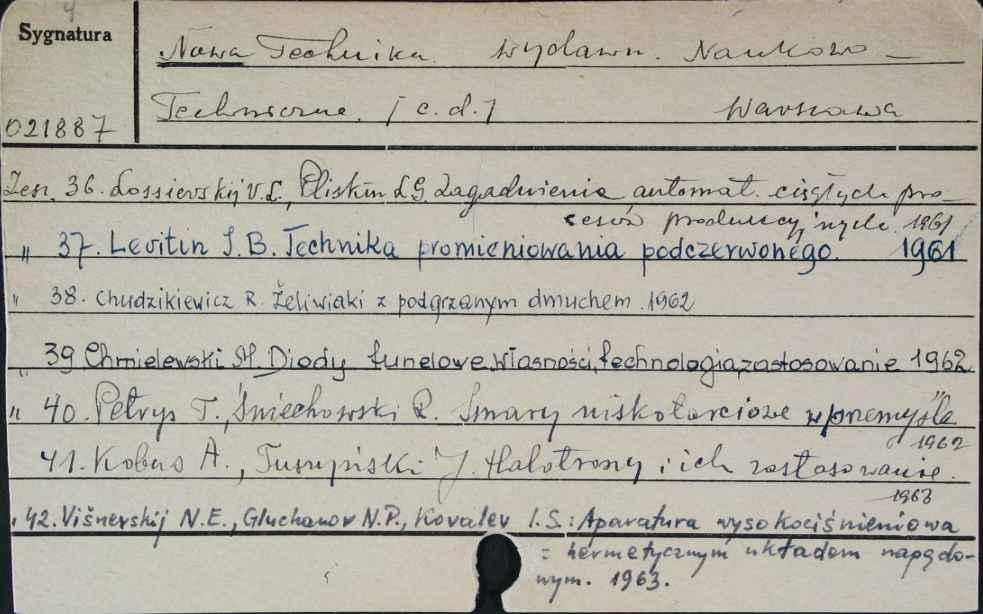 Sygnatura
Nowa Technika. Wydawn. Naukowo-
Techniczne. [c.d.] Warszawa
021887
Zesz. 36. Lossievskij V.L., Pliskin L.G. Zagadnienia automat. ciągłych pro-
cesów produkcyjnych. 1961
" 37. Levitin I.B. Technika promieniowania podczerwonego. 1961
" 38. Chudzikiewicz R. Żeliwiaki z podgrzanym dmuchem. 1962
" 39 Chmielewski M. Diody tunelowe, własności, technologia, zastosowanie 1962
" 40. Petrys T., Śniechowski R. Smary niskotarciowe w przemyśle
1962
41. Kobus A., Tuszyński J. Hallotrony i ich zastosowanie.
1963
" 42. Višnevskij N.E., Gluchanov N.P., Kovalev I.S.: Aparatura wysokociśnieniowa
z hermetycznym układem napędo-
wym. 1963.